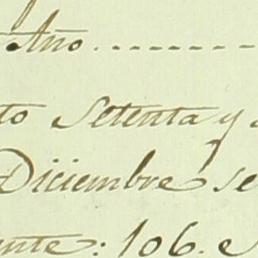 Año..........
to Setenta y
Diciembre se
ente: 106. e